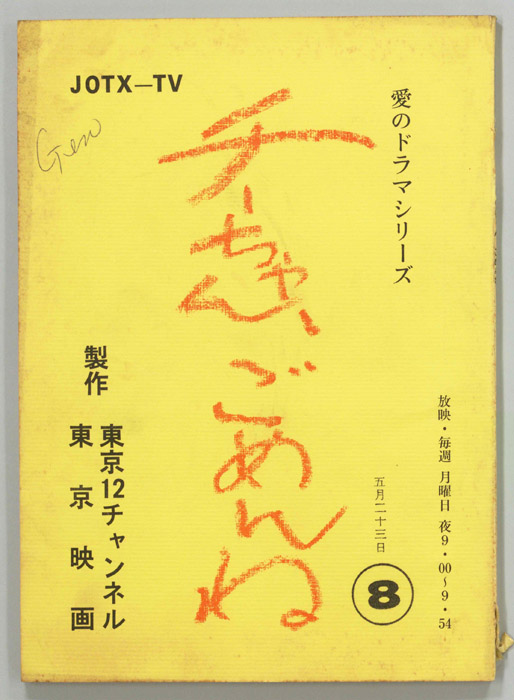 JOTX—TV
Gen
愛のドラマシリーズ
チーちゃん、ごめんね
放映・毎週 月曜日 夜9・00〜9・54
五月二十三日
8
製作 東京12チャンネル
東京映画